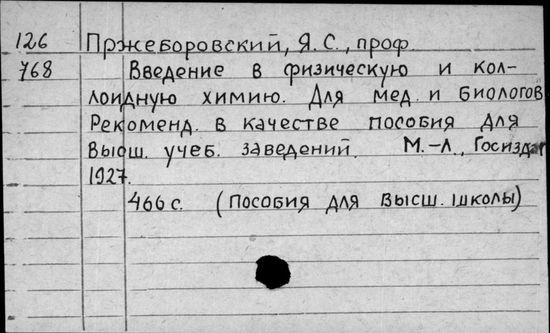 126 Пржеборовский, Я.С., проф.
768 Введение в физическую и кол-
лоидную химию. Для мед. и биологов
Рекоменд. в качестве пособия для
высш. учеб. заведений. М.-Л., Госиздат
1927.
466 с. (Пособия для высш. школы)